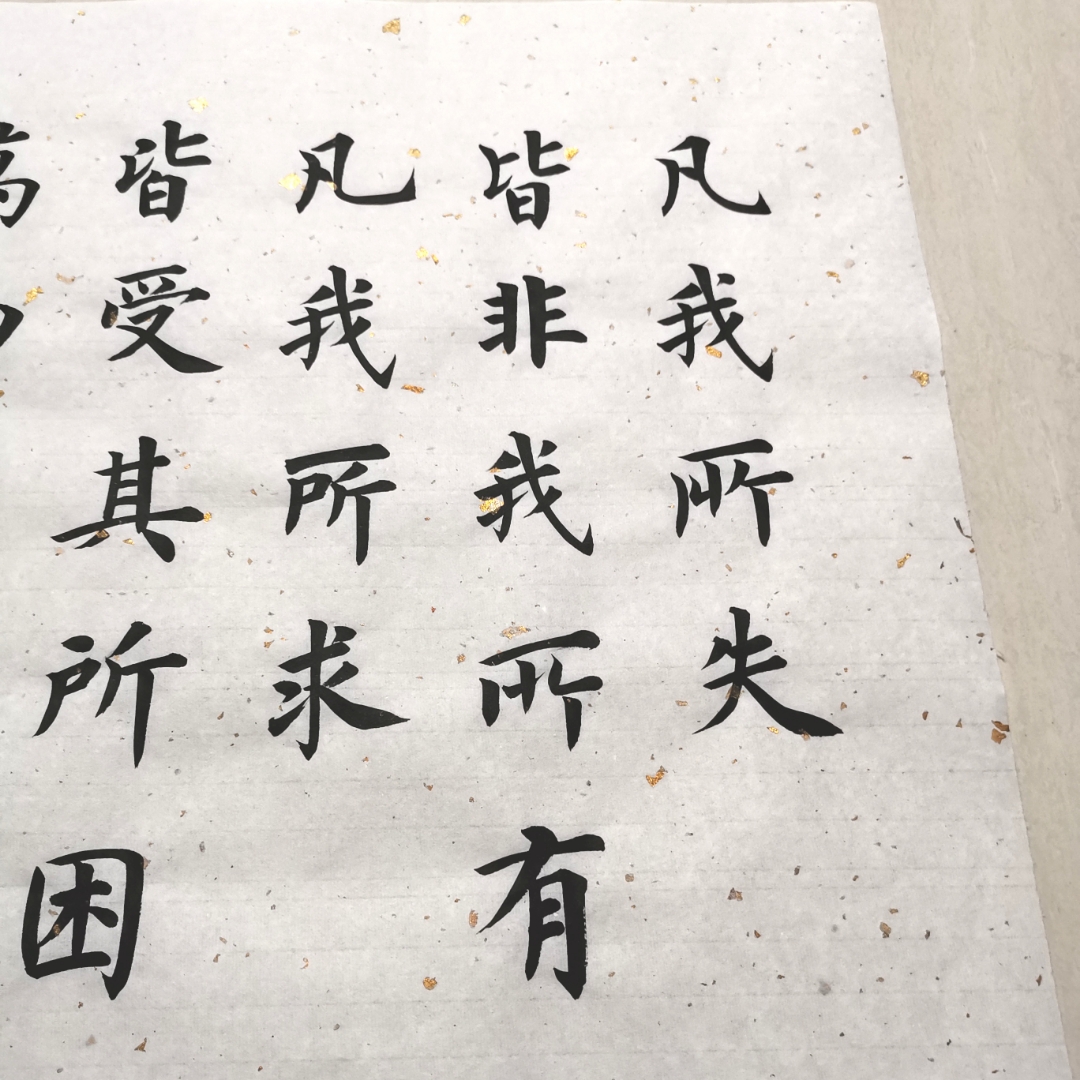 凡我所失
皆非我所有
凡我所求
皆受其所困